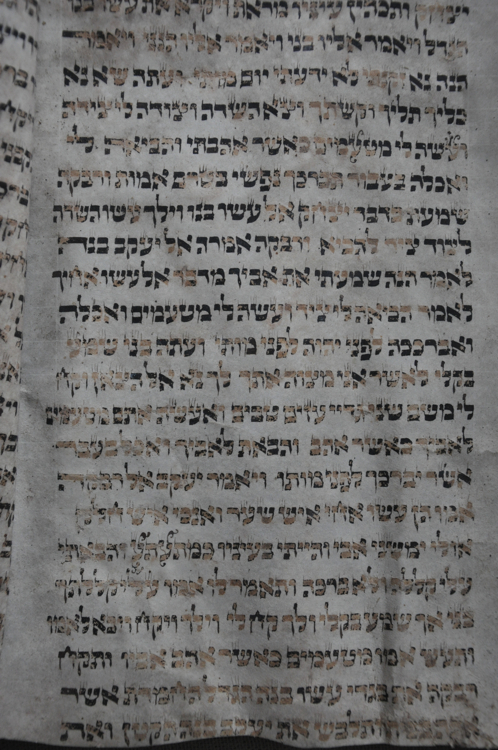 יצחק ותכהין עיניו מראת ויקרא את עשו בנו
הגדל ויאמר אליו בני ויאמר אליו הנני ויאמר
הנה נא זקנתי לא ידעתי יום מותי ועתה שא נא
כליך תליך וקשתך וצא השדה וצודה לי צידה
ועשה לי מטעמים כאשר אהבתי והביאה לי
ואכלה בעבור תברכך נפשי בטרם אמות ורבקה
שמעת בדבר יצחק אל עשו בנו וילך עשו השדה
לצוד ציד להביא ורבקה אמרה אל יעקב בנה
לאמר הנה שמעתי את אביך מדבר אל עשו אחיך
לאמר הביאה לי ציד ועשה לי מטעמים ואכלה
ואברככה לפני יהוה לפני מותי ועתה בני שמע
בקלי לאשר אני מצוה אתך לך נא אל הצאן וקח
לי משם שני גדיי עזים טבים ואעשה אתם מטעמים
לאביך כאשר אהב והבאת לאביך ואכל בעבר
אשר יברכך לפני מותו ויאמר יעקב אל רבקה
אמו הן עשו אחי איש שער ואנכי איש חלק
אולי ימשני אבי והייתי בעיניו כמתעתע והבאתי
עלי קללה ולא ברכה ותאמר לו אמו עלי קללתך
בני אך שמע בקלי ולך קח לי וילך ויקח ויבא לאמו
ותעש אמו מטעמים כאשר אהב אביו ותקח
רבקה את בגדי עשו בנה הגדל החמדת אשר
ותלבש את יעקב בנה הקטן ואת